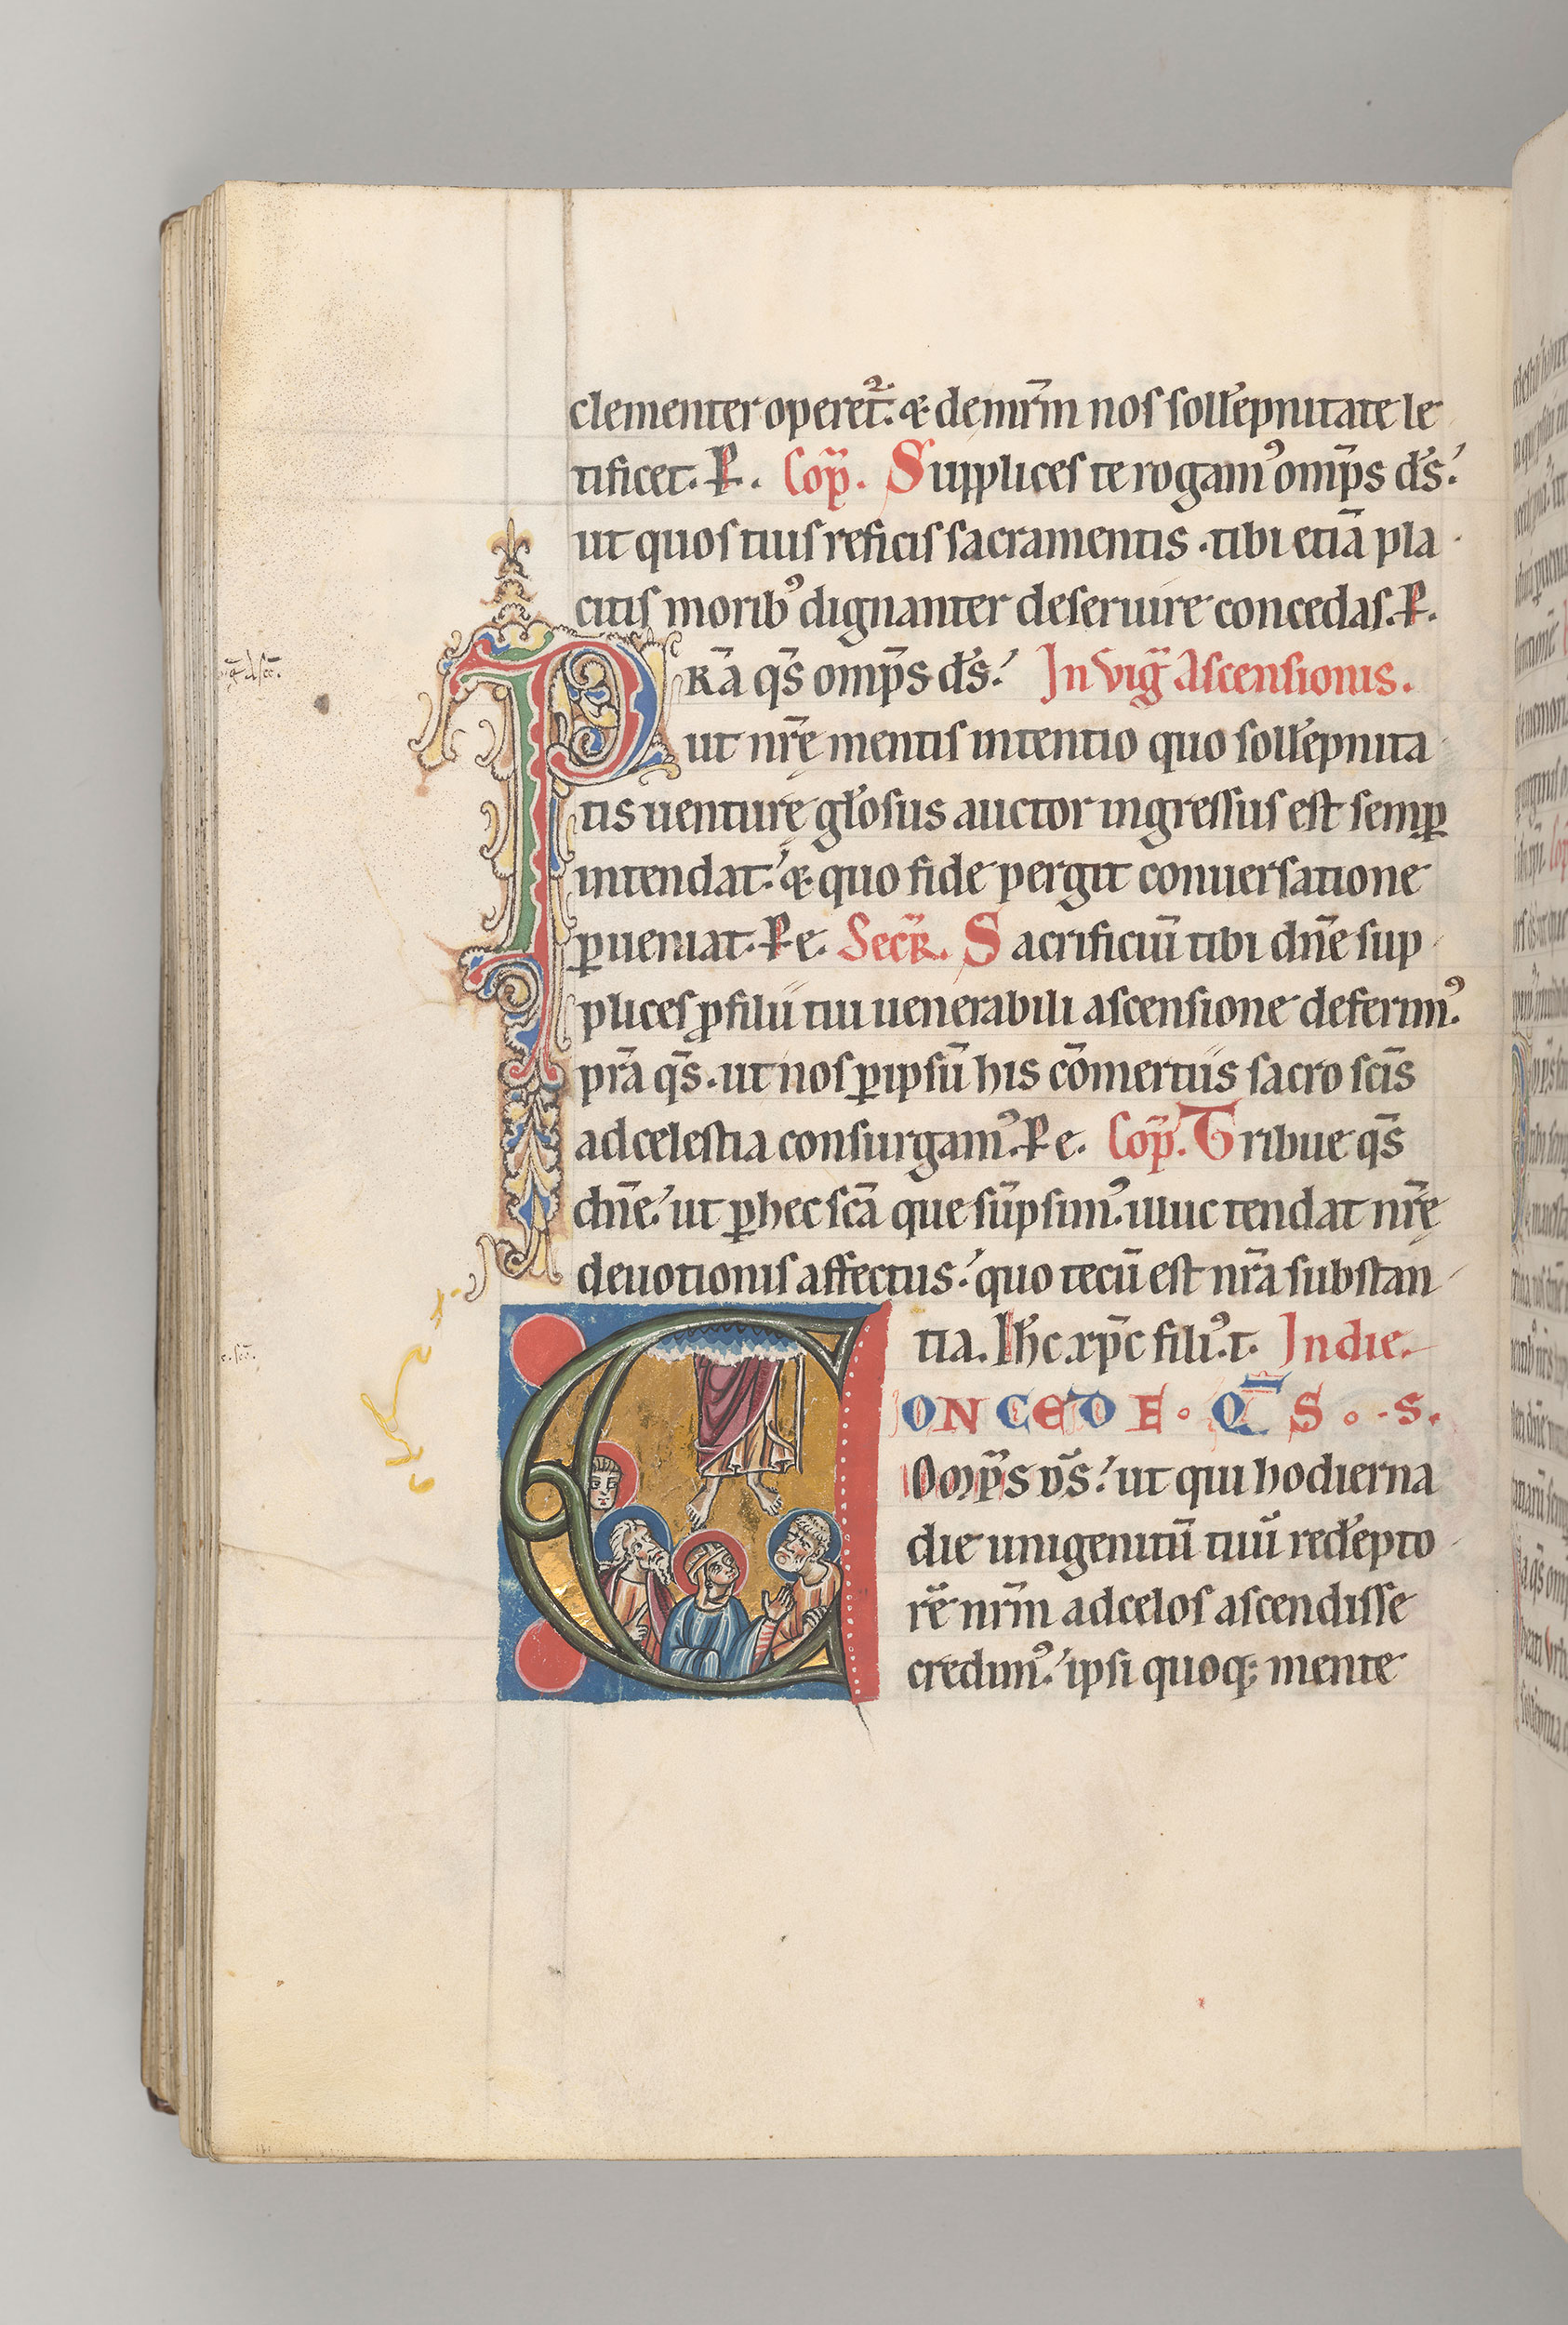 clementer operet̃. & de nr̃m nos sollẽpnitate le
tificet. P. Cop̃. Supplices te rogam᾽ omp̃s d̃s.
ut quos tuis reficis sacramentis. tibi etiã pla
citis morib᾽ dignanter deseruire concedas. P.
PRA q̃s omp̃s d̃s. In vig̃ Ascensionis.
ut nr̃ę mentis intentio quo sollẽpnita
tis uenturę gl̃osus auctor ingressus est semꝑ
intendat. & quo fide pergit conuersatione
ꝑueniat. P e. Secr̃. Sacrificiũ tibi dñe sup
plices ꝓ filii tui uenerabili ascensione deferim᾽.
pr̃a q̃s. ut nos ꝑ ipsũ his cõmertiis sacro sc̃is
ad celestia consurgam᾽. P e. Cop̃. Tribue q̃s
dñe. ut ꝑ hec sc̃a que sũpsim᾽. illuc tendat nr̃ę
deuotionis affectus. quo tecũ est nr̃a substan
tia. Ih̃c xp̃c fili᾽. t. In die.
CONCEDE. Q̃S. .S.
Omp̃s d̃s. ut qui hodierna
die unigenitũ tuũ redẽpto
rẽ nr̃m ad celos ascendisse
credim᾽. ipsi quoq; mente